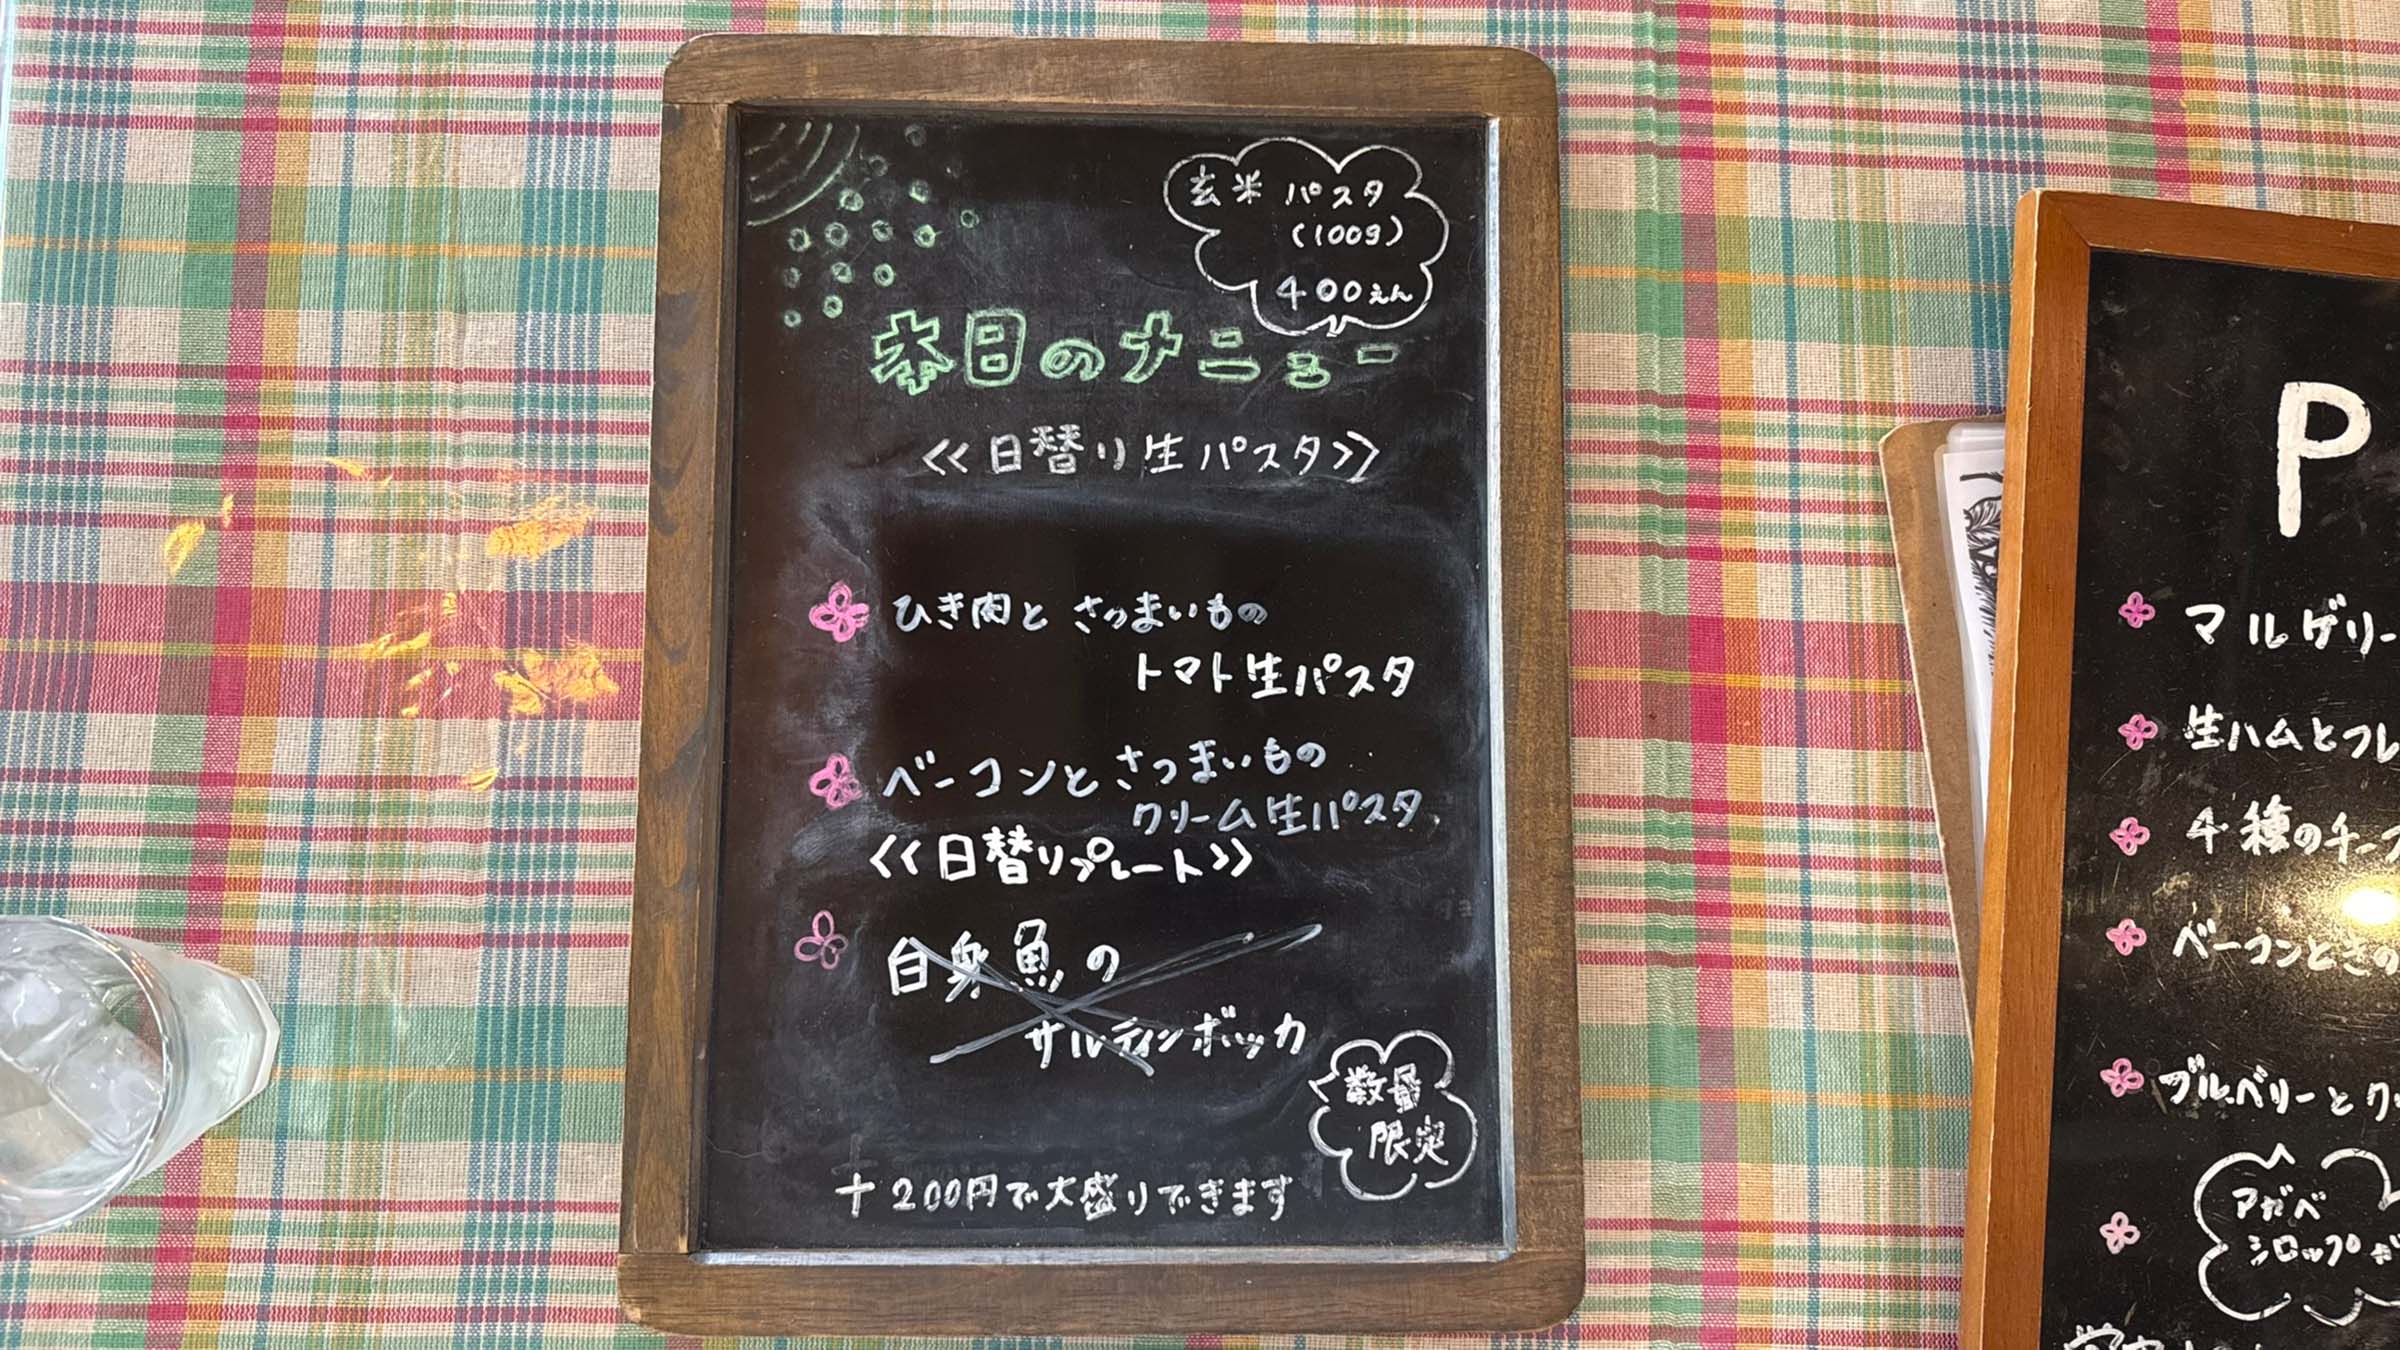 玄米 パスタ
(100g)
400えん
本日のメニュー
<<日替り生パスタ>>
ひき肉と さつまいもの
トマト生パスタ
ベーコンと さつまいもの
クリーム生パスタ
<<日替りプレート>>
白身魚の
サルティンボッカ
数量
限定
+200円で大盛りできます
P
マルゲリー
生ハムとフレ
4種のチーズ
ベーコンときの
ブルーベリーとク
アガベ
シロップ